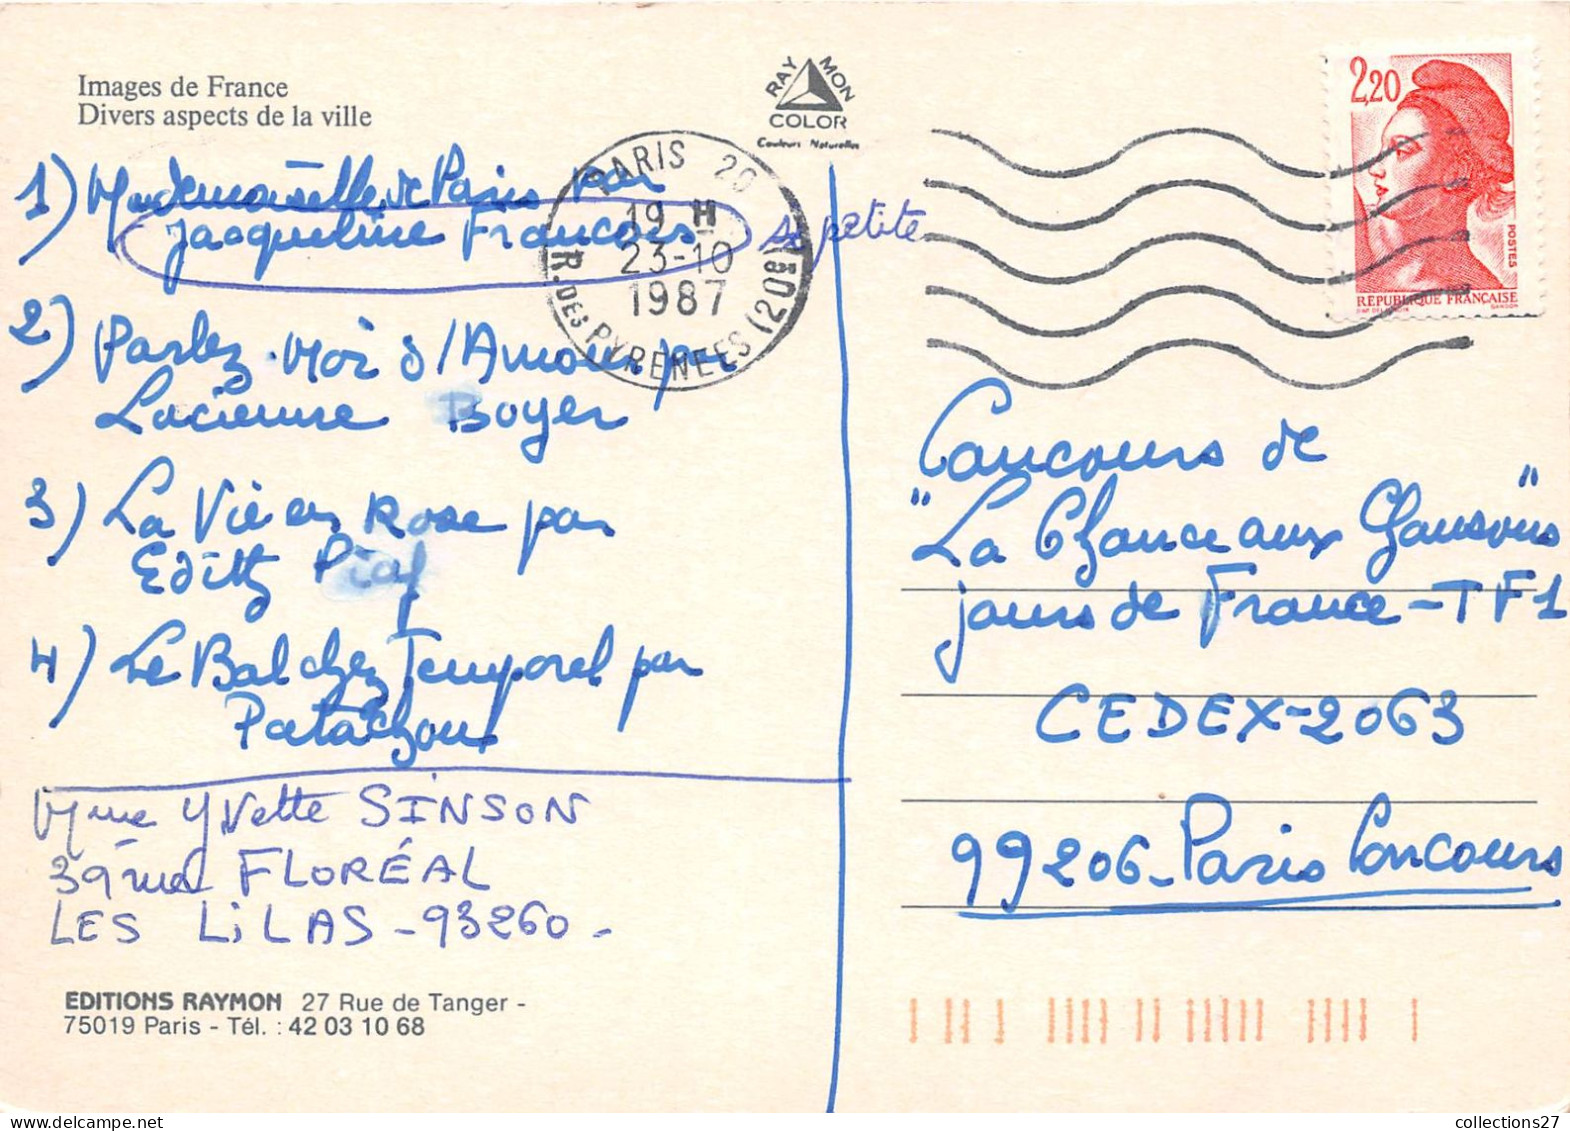 Images de France
Divers aspects de la ville
RAYMON
COLOR
Couleurs Naturelles
2,20
POSTES
REPUBLIQUE FRANÇAISE
PARIS 20
19 H
23-10
1987
R. DES PYRENEES (20E)
1) Mademoiselle de Paris par
Jacqueline Francois
petite
2) Parlez-moi d'Amour par
Lucienne Boyer
3) La Vie en Rose par
Edith Piaf
4) Le Bal chez Temporel par
Patachou
Mme Yvette SINSON
39 rue FLORÉAL
LES LiLAS - 93260 -
Concours de
"La Chance aux Chansons"
jours de France - TF1
CEDEX-2063
99206 - Paris Concours
EDITIONS RAYMON 27 Rue de Tanger -
75019 Paris - Tél. : 42 03 10 68
collections27